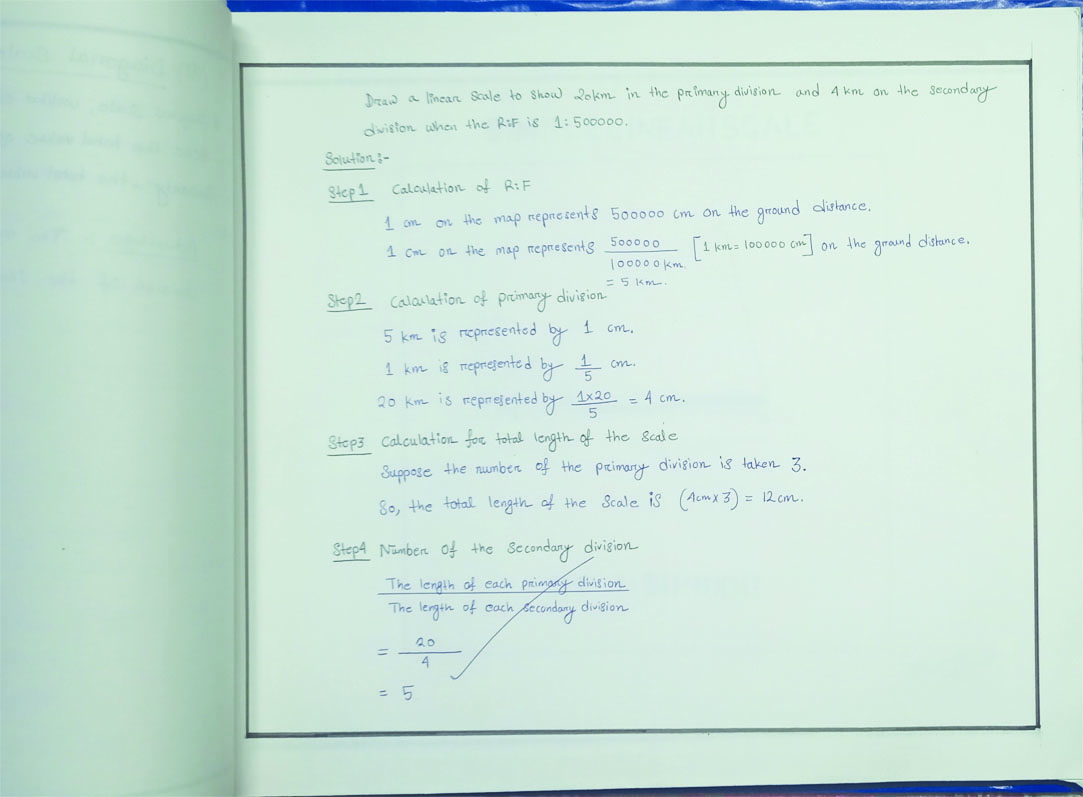 Draw a linear Scale to show 20km in the primary division and 4 km on the secondary
division when the R:F is 1:500000.
Solution:-
Step1 Calculation of R:F
1 cm on the map represents 500000 cm on the ground distance.
1 cm on the map represents 500000 / 100000 km. [1 km = 100000 cm] on the ground distance.
= 5 km.
Step2 Calculation of primary division
5 km is represented by 1 cm.
1 km is represented by 1/5 cm.
20 km is represented by 1×20/5 = 4 cm.
Step3 Calculation for total length of the Scale
Suppose the number of the primary division is taken 3.
So, the total length of the Scale is (4cm × 3) = 12cm.
Step4 Number Of the Secondary division
The length of each primary division
The length of each Secondary division
= 20/4
= 5